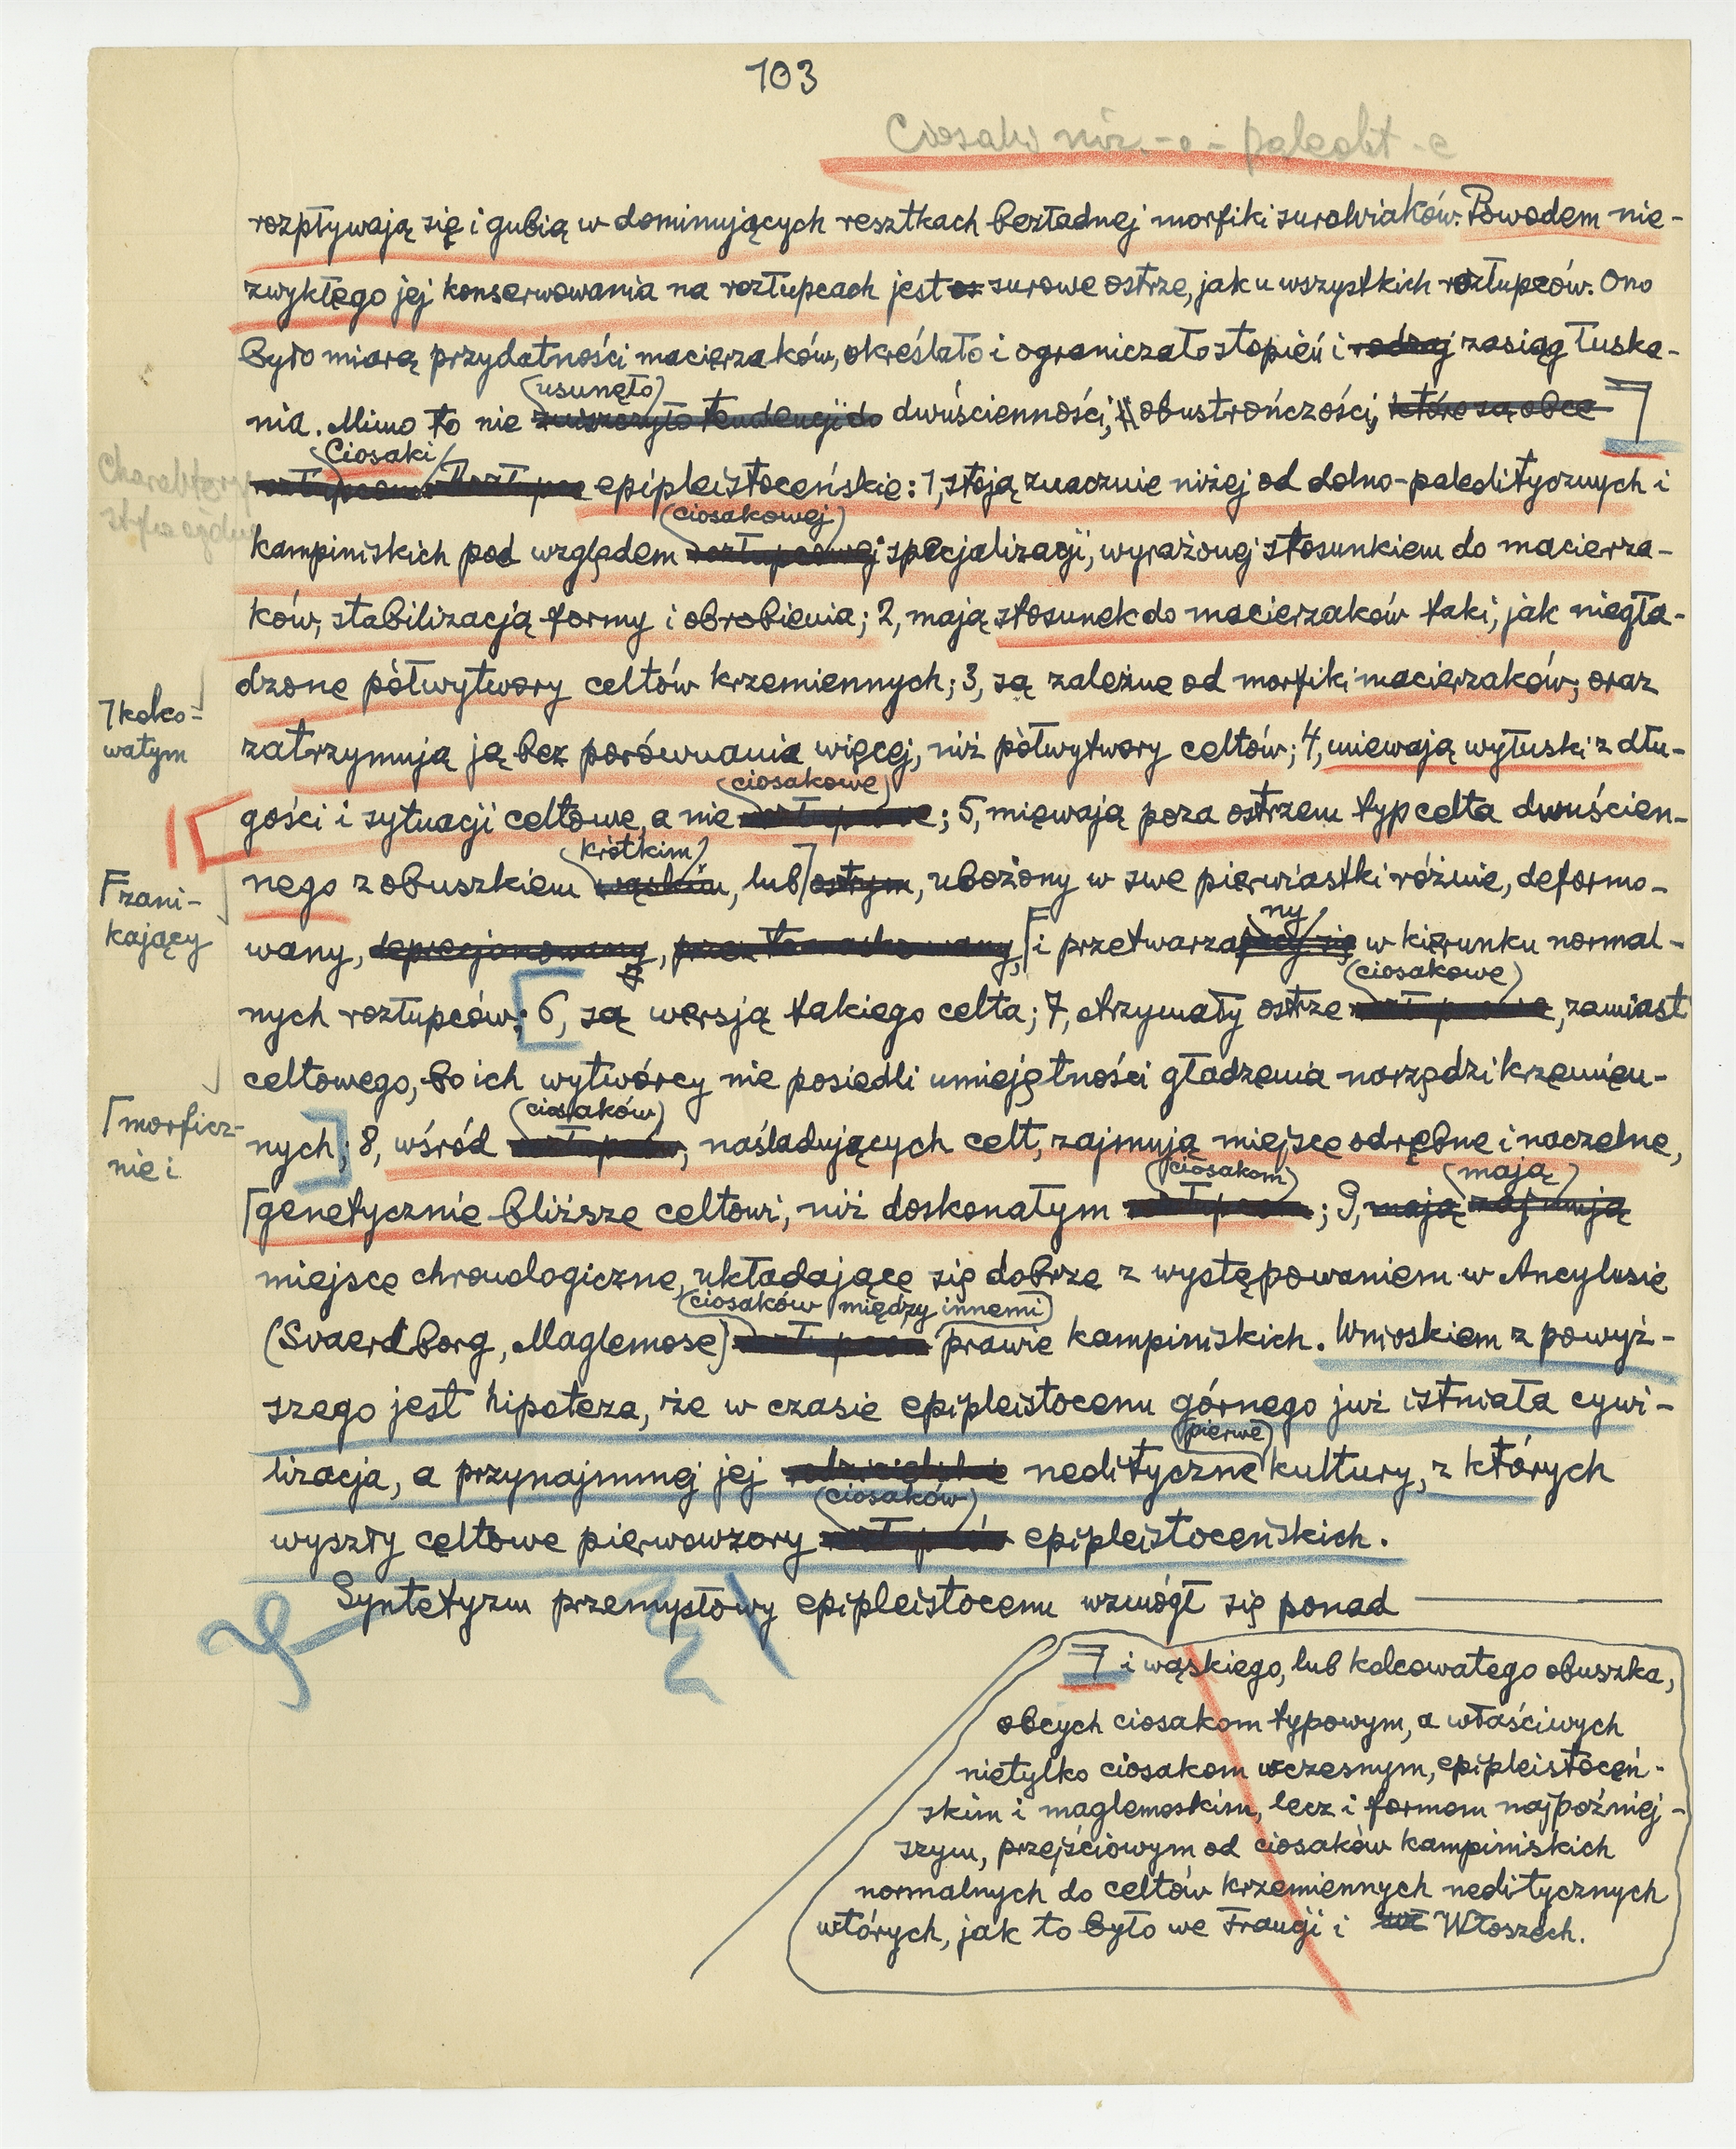 103
rozpływają się i gubią w dominujących resztkach bezładnej morfiki surowiaków. Powodem nie-
zwykłego jej konserwowania na rozłupcach jest surowe ostrze, jak u wszystkich rozłupców. Ono
było miarą przydatności macierzaków, określało i ograniczało stopień i rodzaj zasiąg łuska-
usunęło
nia. Mimo to nie zniszczyło tendencji do dwuścienności, obustrończości, które są obce ⁊
Ciosaki
epipleistoceńskie: 1, stoją znacznie niżej od dolno-paleolitycznych i
ciosakowej
kampiniskich pod względem specjalizacji, wyrażonej stosunkiem do macierza-
ków, stabilizacją formy i obrobienia; 2, mają stosunek do macierzaków taki, jak niegła-
dzone półwytwory celtów krzemiennych; 3, są zależne od morfiki macierzaków, oraz
⁊ kolco-
watym
zatrzymują ją bez porównania więcej, niż półwytwory celtów; 4, miewają wyłuski z dłu-
ciosakowe
gości i sytuacji celtowe, a nie ; 5, miewają poza ostrzem typ celta dwuścien-
krótkim
nego z obuszkiem wąskim, lub ostrym, ubożony w swe pierwiastki różnie, deformo-
Γ zani-
kający
ny
wany, deprecjonowany, i przetwarza w kierunku normal-
ciosakowe
nych rozłupców; 6, są wersją takiego celta; 7, otrzymały ostrze , zamiast
celtowego, bo ich wytwórcy nie posiedli umiejętności gładzenia narzędzi krzemien-
Γ morficz-
nie i
ciosaków
nych; 8, wśród , naśladujących celt, zajmują miejsce odrębne i naczelne,
ciosakom mają
Γ genetycznie bliższe celtowi, niż doskonałym ; 9, mają zajmują
miejsce chronologiczne, układające się dobrze z występowaniem w Ancylusie
ciosaków między innemi
(Svaerdborg, Maglemose) prawie kampiniskich. Wnioskiem z powyż-
szego jest hipoteza, że w czasie epipleistocenu górnego już istniała cywi-
pierwe
lizacja, a przynajmniej jej neolityczne kultury, z których
ciosaków
wyszły celtowe pierwowzory epipleistoceńskich.
Syntetyzm przemysłowy epipleistocenu wzmógł się ponad
⁊ i wąskiego, lub kolcowatego obuszka,
obcych ciosakom typowym, a właściwych
nietylko ciosakom wczesnym, epipleistoceń-
skim i maglemoskim, lecz i formom najpóźniej-
szym, przejściowym od ciosaków kampiniskich
normalnych do celtów krzemiennych neolitycznych
wtórych, jak to było we Francji i Włoszech.